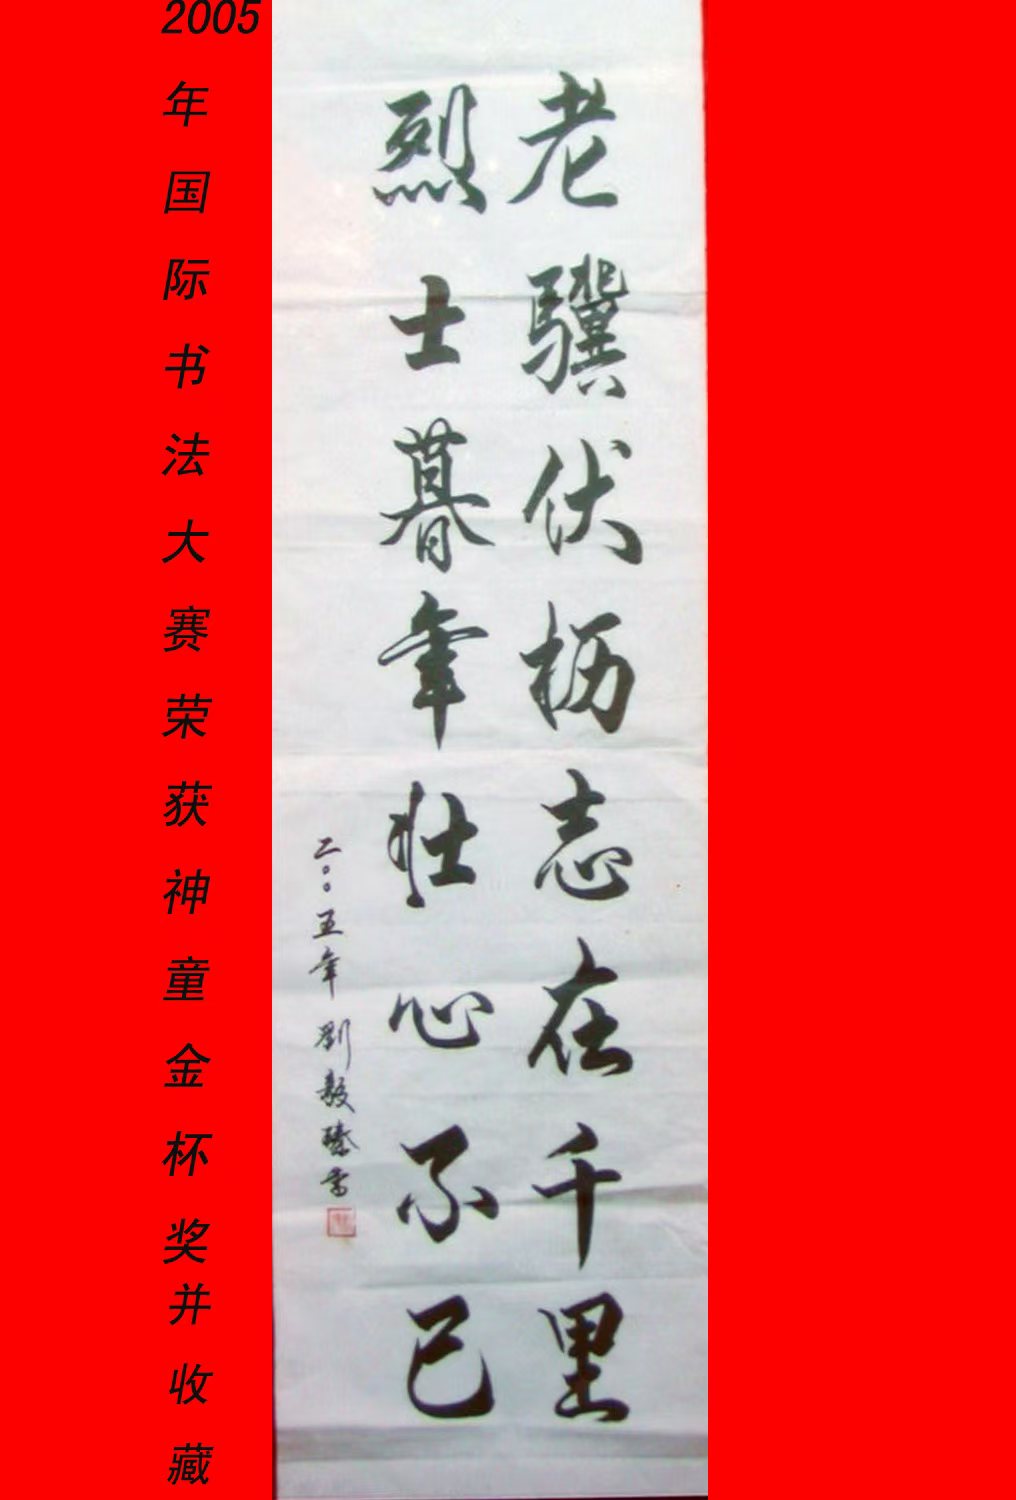 老驥伏枥志在千里
烈士暮年壯心不已
二〇〇五年 劉毅臻書
2005年国际书法大赛荣获神童金杯奖并收藏